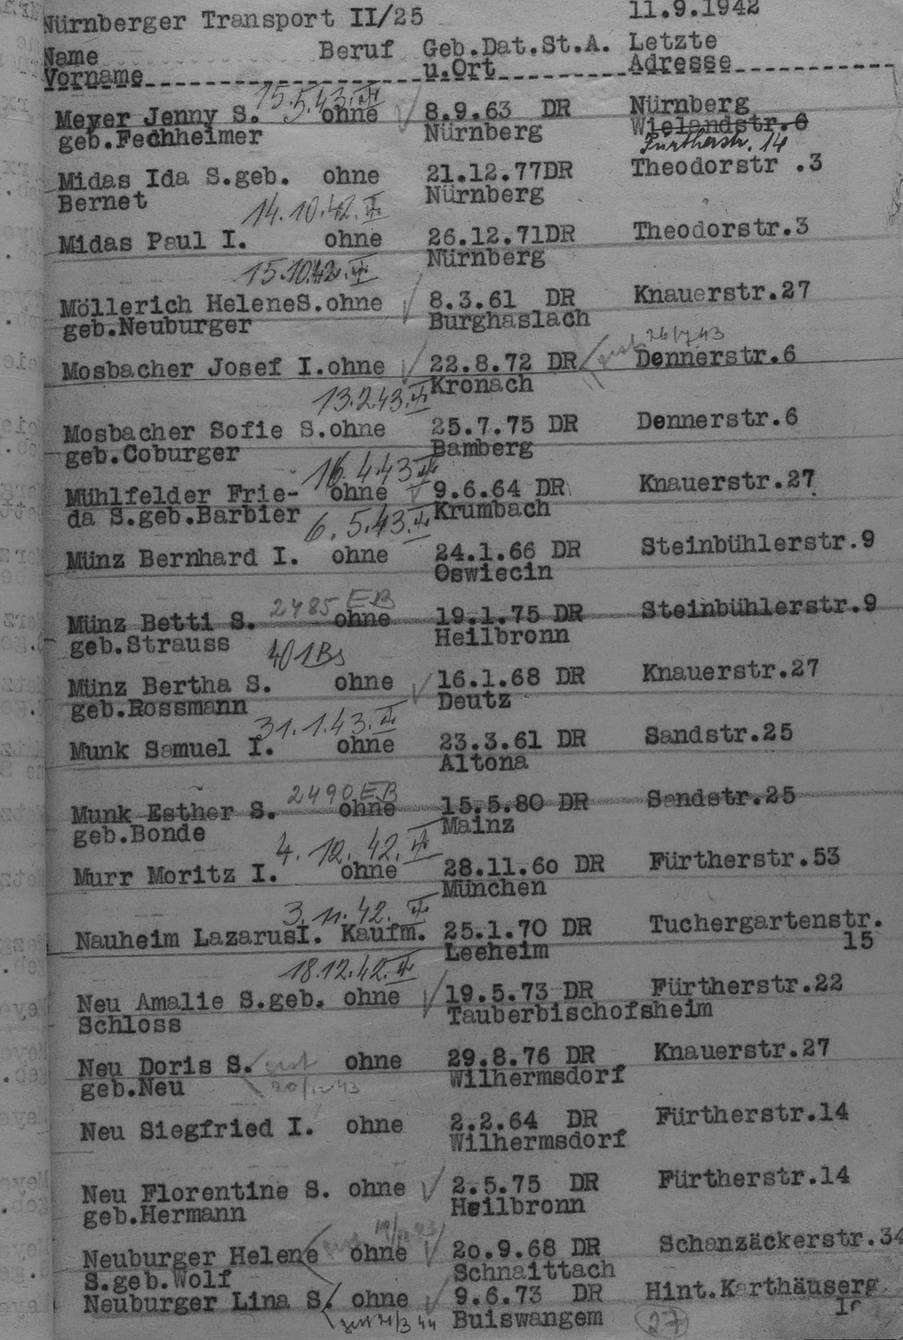 Nürnberger Transport II/25 11.9.1942
Name Beruf Geb.Dat.St.A. Letzte
Vorname u.Ort Adresse
15.5.43.
Meyer Jenny S. ohne 8.9.63 DR Nürnberg
geb.Fechheimer Nürnberg Wielandstr.6
Fürtherstr. 14
Midas Ida S.geb. ohne 21.12.77DR Theodorstr .3
Bernet Nürnberg
14.10.42.
Midas Paul I. ohne 26.12.71DR Theodorstr.3
Nürnberg
15.10.42.
Möllerich HeleneS.ohne 8.3.61 DR Knauerstr.27
geb.Neuburger Burghaslach
26/7.43
Mosbacher Josef I.ohne 22.8.72 DR Dennerstr.6
Kronach
13.2.43.
Mosbacher Sofie S.ohne 25.7.75 DR Dennerstr.6
geb.Coburger Bamberg
16.4.43
Mühlfelder Frie- ohne 9.6.64 DR Knauerstr.27
da S.geb.Barbier Krumbach
6.5.43.
Münz Bernhard I. ohne 24.1.66 DR Steinbühlerstr.9
Oswiecin
2485 EB
Münz Betti S. ohne 19.1.75 DR Steinbühlerstr.9
geb.Strauss Heilbronn
401Bs
Münz Bertha S. ohne 16.1.68 DR Knauerstr.27
geb.Rossmann Deutz
31.1.43.
Munk Samuel I. ohne 23.3.61 DR Sandstr.25
Altona
2490 EB
Munk Esther S. ohne 15.5.80 DR Sandstr.25
geb.Bonde Mainz
4.12.42.
Murr Moritz I. ohne 28.11.60 DR Fürtherstr.53
München
3.11.42.
Nauheim LazarusI. Kaufm. 25.1.70 DR Tuchergartenstr.
Leeheim 15
18.12.42.
Neu Amalie S.geb. ohne 19.5.73 DR Fürtherstr.22
Schloss Tauberbischofsheim
Neu Doris S. ohne 29.8.76 DR Knauerstr.27
geb.Neu Wilhermsdorf
Neu Siegfried I. ohne 2.2.64 DR Fürtherstr.14
Wilhermsdorf
Neu Florentine S. ohne 2.5.75 DR Fürtherstr.14
geb.Hermann Heilbronn
Neuburger Helene ohne 20.9.68 DR Schanzäckerstr.34
S.geb.Wolf Schnaittach
Neuburger Lina S. ohne 9.6.73 DR Hint.Karthäuserg
Buiswangem 27